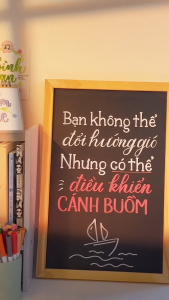 Bạn không thể
đổi hướng gió
Nhưng có thể
điều khiển
CÁNH BUỒM